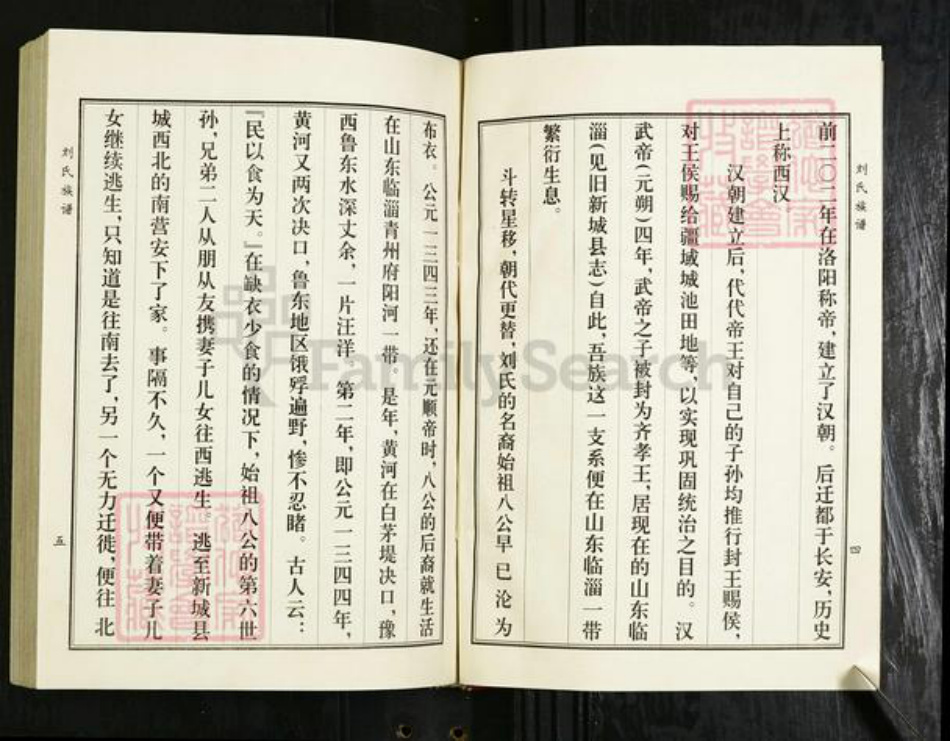 刘氏族谱
前二〇二年在洛阳称帝，建立了汉朝。后迁都于长安，历史
上称西汉。
汉朝建立后，代代帝王对自己的子孙均推行封王赐侯，
对王侯赐给疆域城池田地等，以实现巩固统治之目的。汉
武帝（元朔）四年，武帝之子被封为齐孝王，居现在的山东临
淄（见旧新城县志）自此，吾族这一支系便在山东临淄一带
繁衍生息。
斗转星移，朝代更替，刘氏的名裔始祖八公早已沦为
四
布衣。公元一三四三年，还在元顺帝时，八公的后裔就生活
在山东临淄青州府阳河一带。是年，黄河在白茅堤决口，豫
西鲁东水深丈余，一片汪洋。第二年，即公元一三四四年，
黄河又两次决口，鲁东地区饿殍遍野，惨不忍睹。古人云：
『民以食为天。』在缺衣少食的情况下，始祖八公的第六世
孙，兄弟二人从朋从友携妻子儿女往西逃生，逃至新城县
城西北的南营安下了家。事隔不久，一个又便带着妻子儿
女继续逃生，只知道是往南去了，另一个无力迁徙，便往北
刘氏族谱
五
FamilySearch